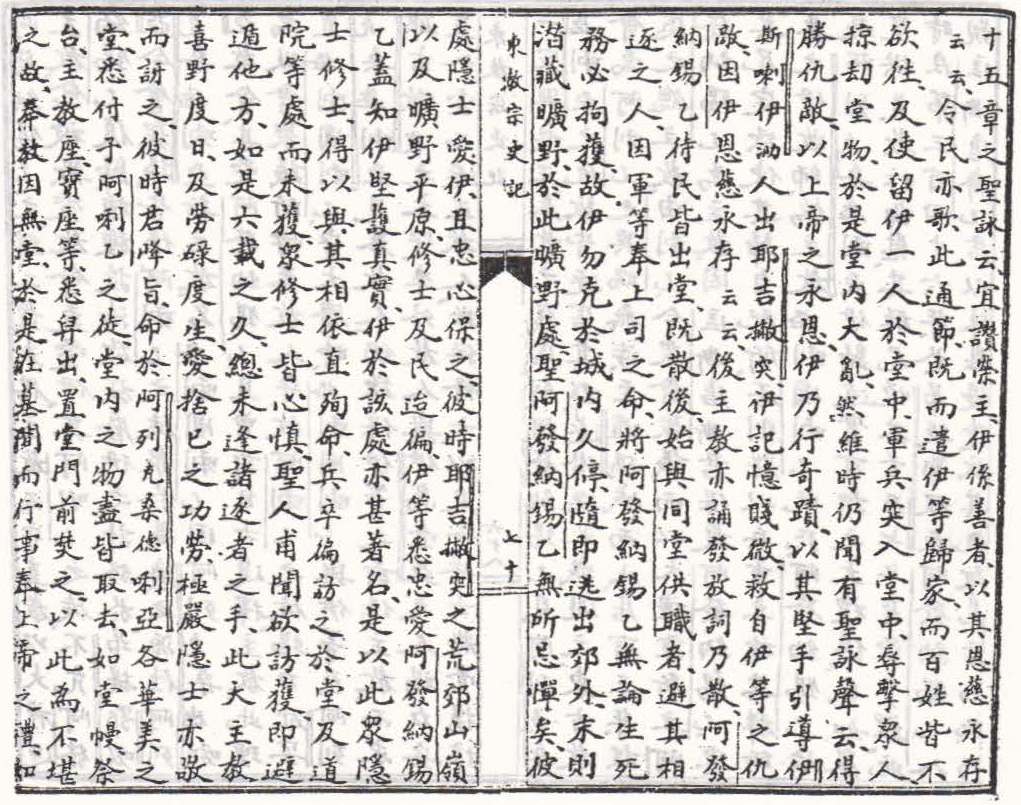 十五章之聖詠云、宜讚榮主、伊係善者、以其恩慈永存
云云、令民亦歌此通節、既而遣伊等歸家、而百姓皆不
欲徃、及使留伊一人於堂中、軍兵突入堂中、辱擊衆人、
掠却堂物、於是堂內大亂、然維時仍聞有聖詠聲云、得
勝仇敵、以上帝之永恩、伊乃行奇蹟、以其堅手引導伊
斯喇伊泐人出耶吉撇突、伊記憶賤微、救自伊等之仇
敵、因伊恩慈永存云云後主教亦誦發放詞乃散、阿發
納錫乙待民皆出堂既散後始與同堂供職者、避其相
逐之人因軍等奉上司之命、將阿發納錫乙無論生死
務必拘獲、故伊勿克於城內久停、隨即逃出郊外、末則
潛藏曠野、於此曠野處、聖阿發納錫乙無所忌憚矣、彼
東教宗史記
七十
處隱士愛伊、且忠心保之、彼時耶吉撇突之荒郊山嶺
以及曠野平原、修士及民迨徧、伊等悉忠愛阿發納錫
乙蓋知伊堅護真實、伊於該處亦甚著名、是以此衆隱
士修士、得以與其相依直殉命、兵卒徧訪之於堂、及道
院等處、而未獲、衆修士皆心慎、聖人甫聞欲訪獲即避
遁他方、如是六載之久、總未逢諸逐者之手、此大主教
喜野度日、及勞碌度生、愛捨已之功勞、極嚴隱士亦敬
而訝之、彼時君降旨、命於阿列克桑德喇亞各華美之
堂、悉付于阿唎乙之徒、堂內之物盡皆取去、如堂幔、祭
台、主教座、寶座等、悉舁出、置堂門前焚之、以此為不堪
之故、奉教因無堂、於是、在墓間而行事奉上帝之禮、如